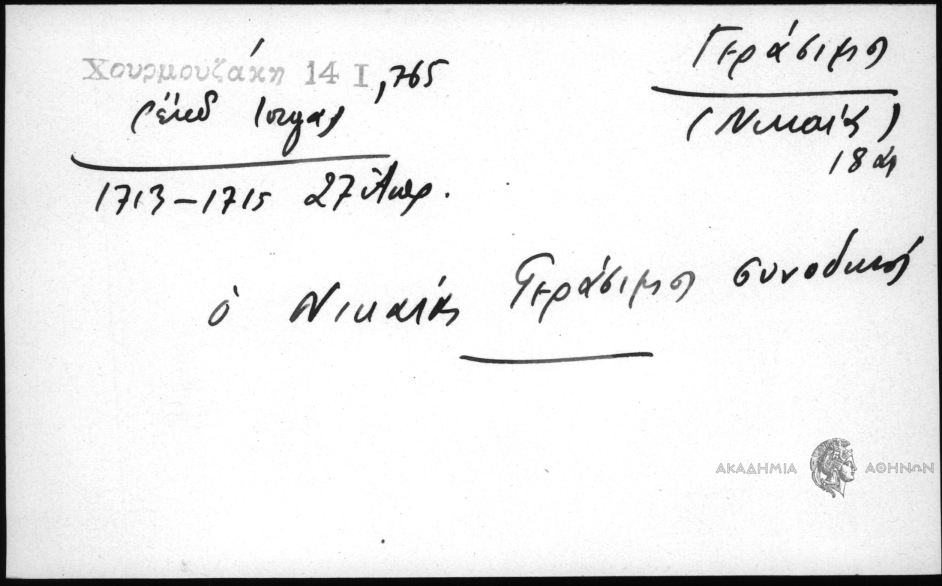 Χουρμουζάκη 14 I, 765
1713-1715 27 Ἀπρ.
Γεράσιμος
(Νικαίας)
18 αι
ὁ Νικαίας Γεράσιμος συνοδικός
ΑΚΑΔΗΜΙΑ ΑΘΗΝΩΝ